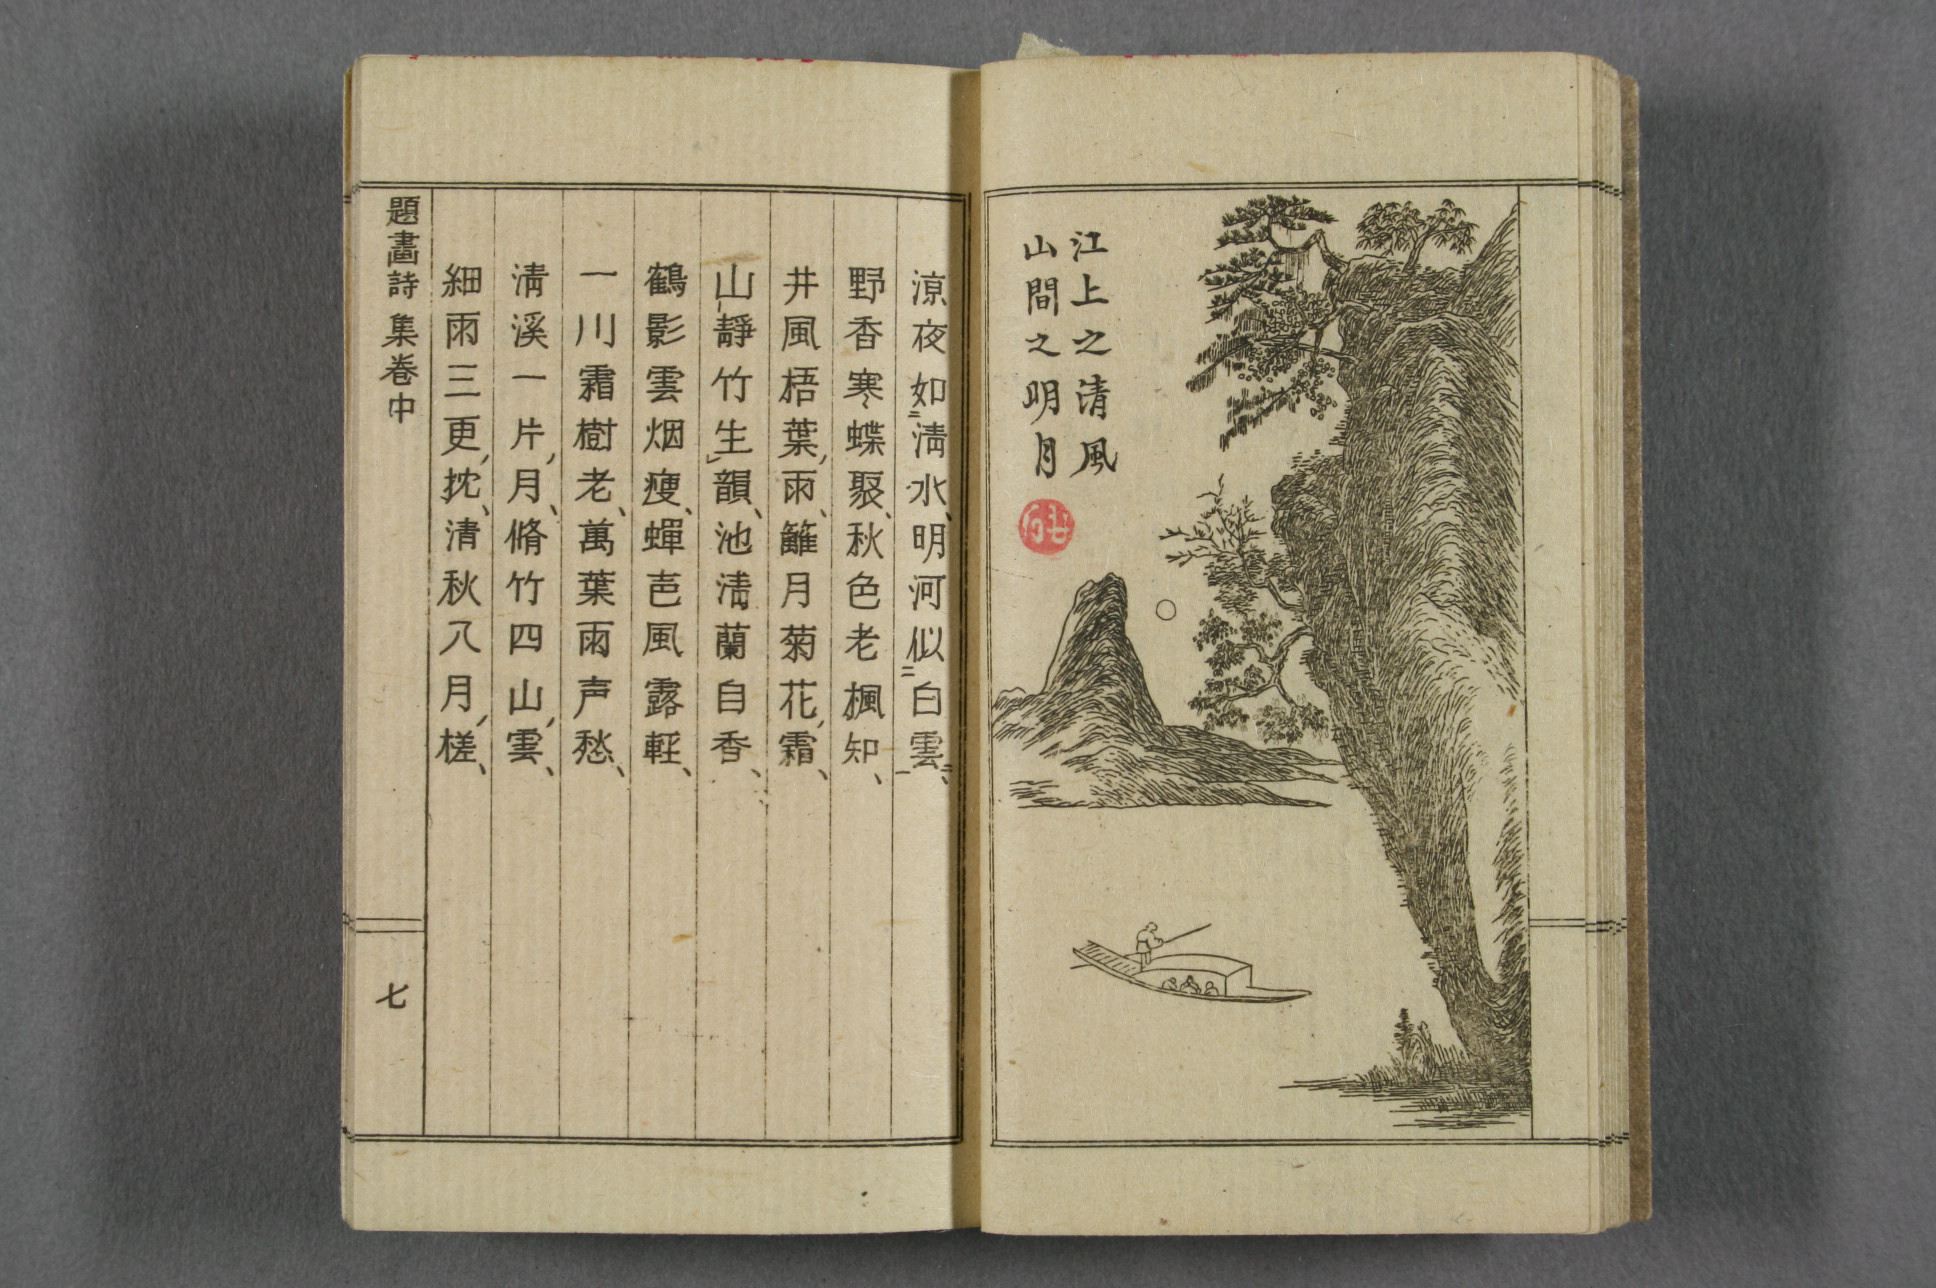 江上之清風
山間之明月
涼夜如淸水明河似白雲
野香寒蝶聚秋色老楓知
井風梧葉雨籬月菊花霜
山靜竹生韻池淸蘭自香
鶴影雲烟瘦蟬声風露軽
一川霜樹老萬葉雨声愁
淸溪一片月脩竹四山雲
細雨三更枕清秋八月槎
題畵詩集卷中
七